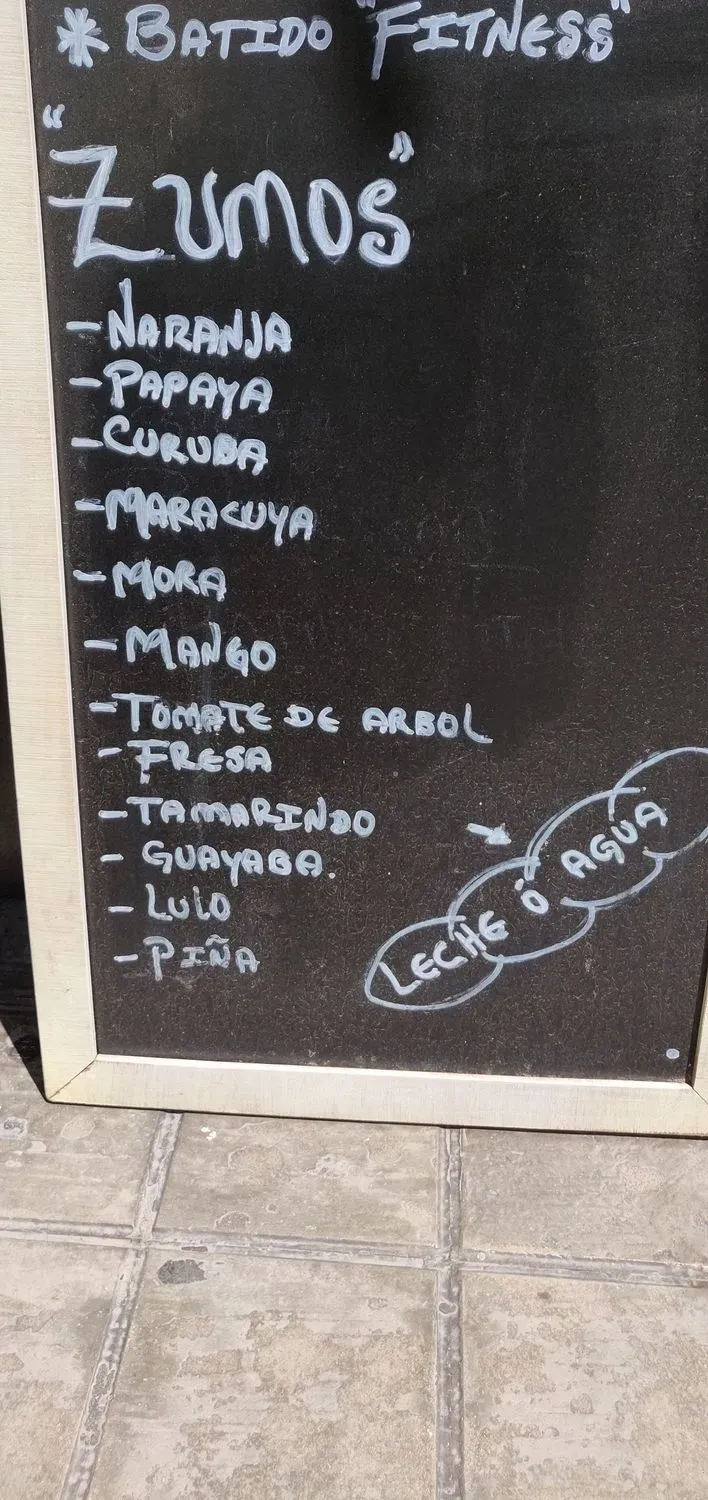 * BATIDO "FITNESS"
"ZUMOS"
- NARANJA
- PAPAYA
- CURUBA
- MARACUYA
- MORA
- MANGO
- TOMATE DE ARBOL
- FRESA
- TAMARINDO
- GUAYABA
- LULO
- PIÑA
LECHE Ó AGUA